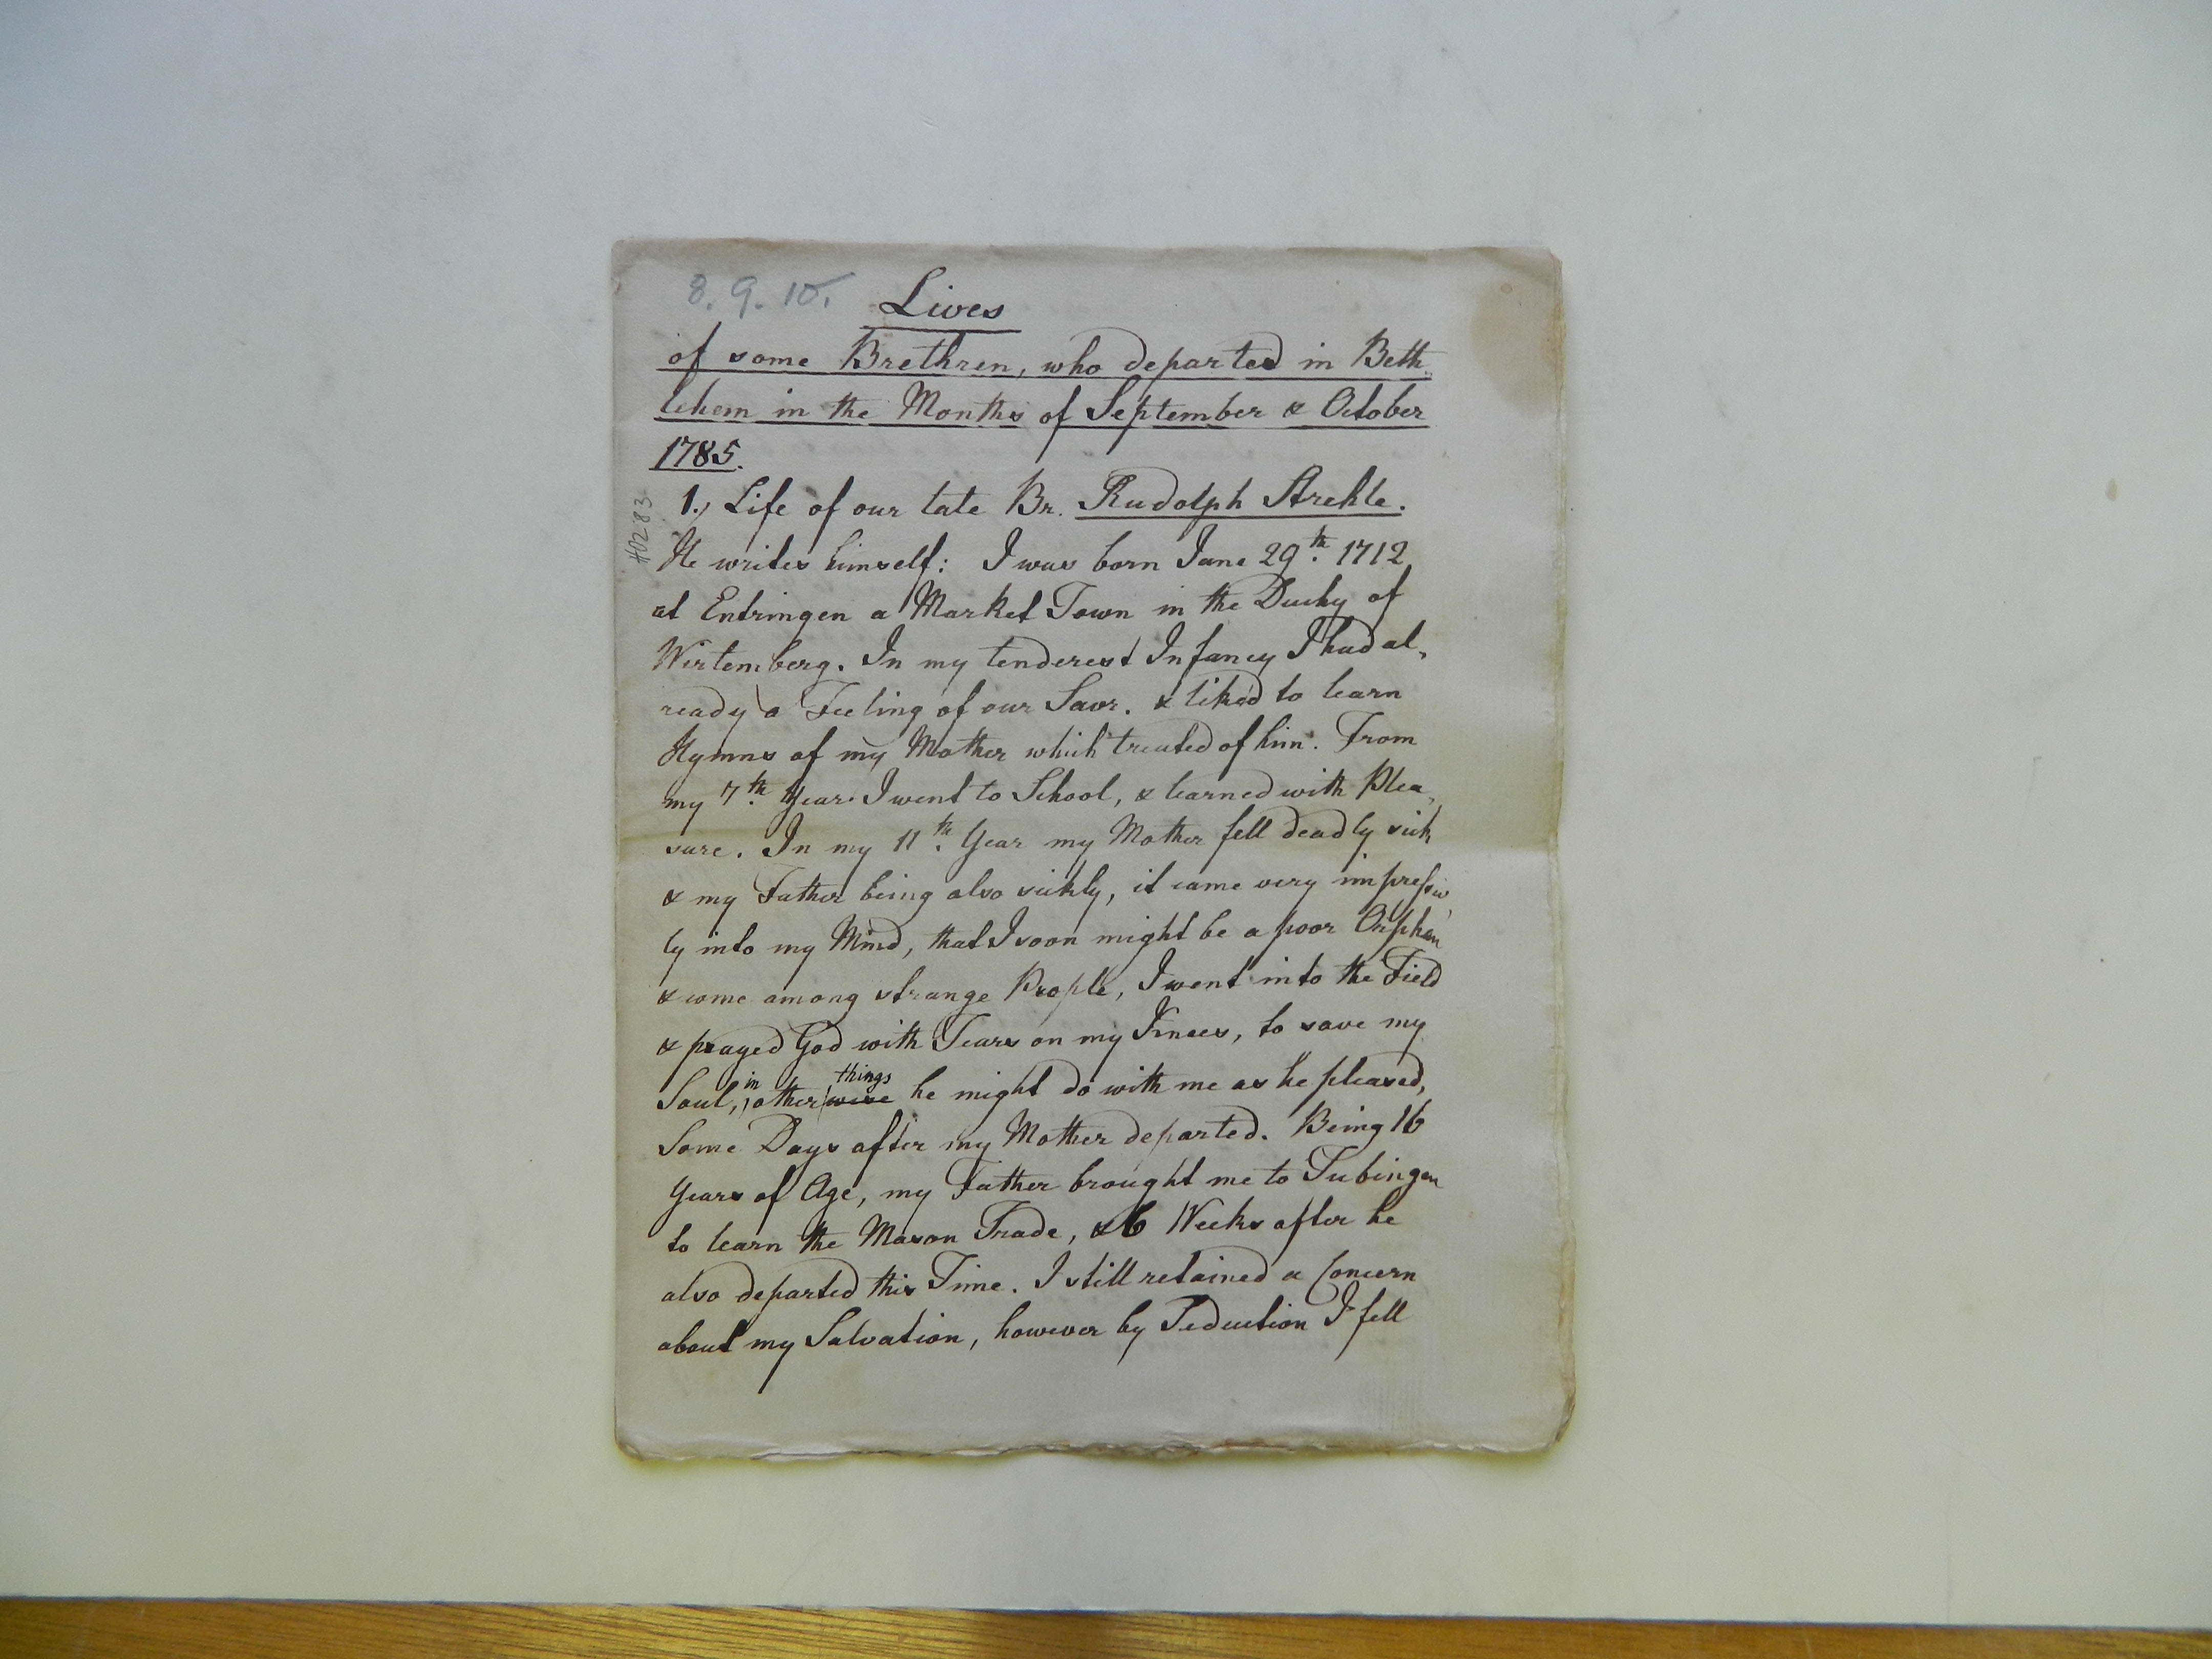 8. 9. 10.
Lives
of some Brethren, who departed in Beth„
lehem in the Months of September & October
1785.
1., Life of our late Br. Rudolph Strehle.
H0283
He writes himself: I was born June 29th. 1712
at Entringen a Market Town in the Duchy of
Wirtemberg. In my tenderest Infancy I had al„
ready a Feeling of our Savr. & liked to learn
Hymns of my Mother which treated of him. From
my 7th. Year I went to School, & learned with Plea„
sure. In my 11th. Year my Mother fell deadly sick
& my Father being also sickly, it came very impressiv„
ly into my Mind, that I soon might be a poor Orphan
& come among strange People, I went into the Field
& prayed God with Tears on my Knees, to save my
Soul, in other wise things he might do with me as he pleased,
Some Days after my Mother departed. Being 16
Years of Age, my Father brought me to Tubingen
to learn the Mason Trade, & 6 Weeks after he
also departed this Time. I still retained a Concern
about my Salvation, however by Seduction I fell